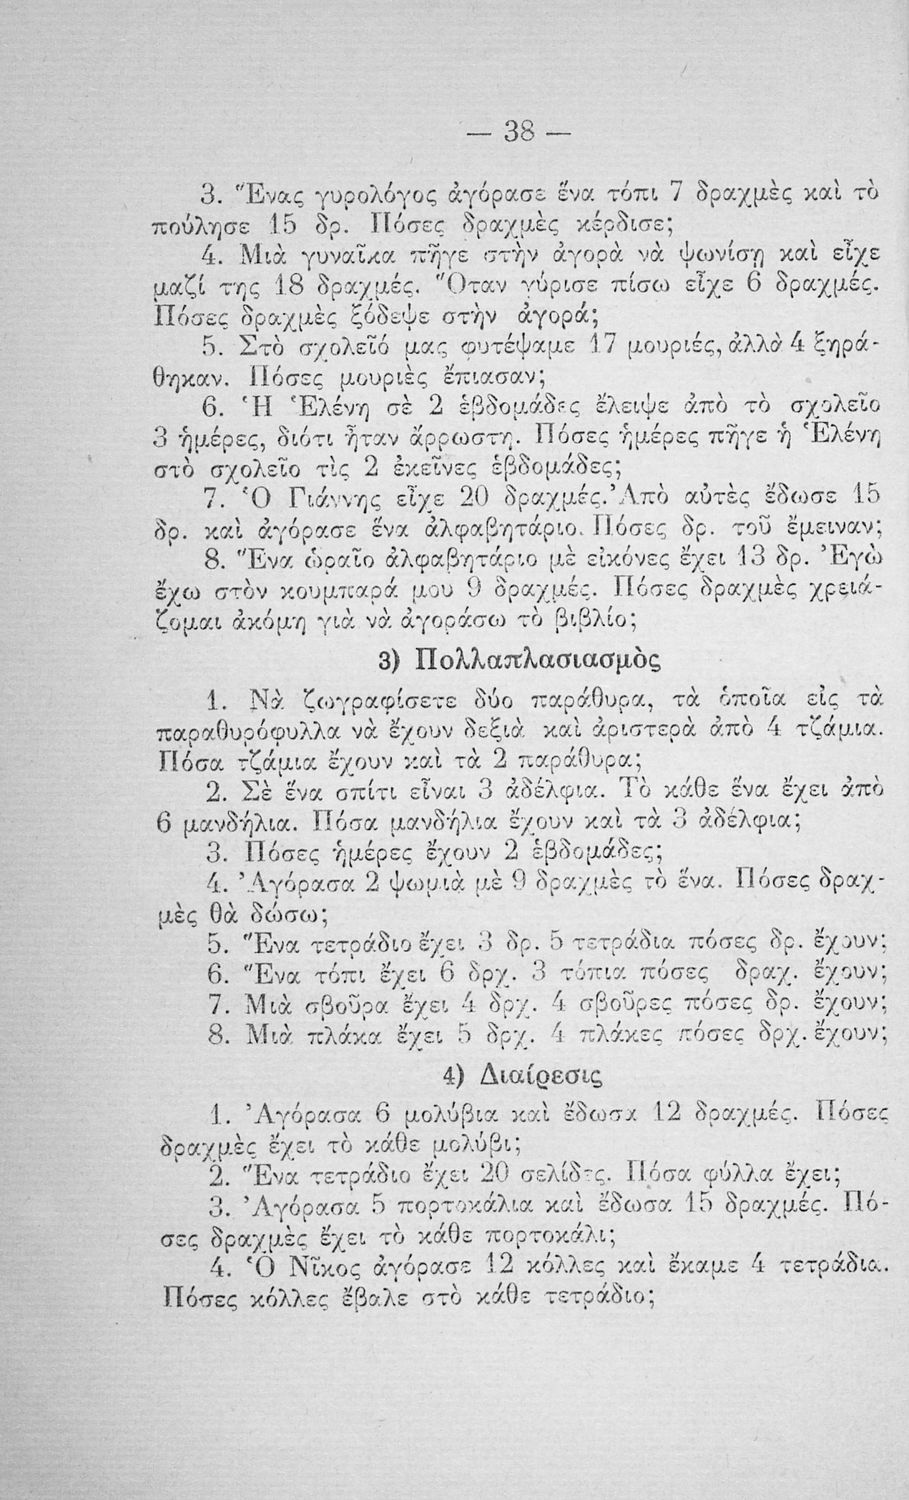 — 38 —
3. Ἕνας γυρολόγος ἀγόρασε ἕνα τόπι 7 δραχμὲς καὶ τὸ
πούλησε 15 δρ. Πόσες δραχμὲς κέρδισε;
4. Μιὰ γυναῖκα πῆγε στὴν ἀγορὰ νὰ ψωνίσῃ καὶ εἶχε
μαζί της 18 δραχμές. Ὅταν γύρισε πίσω εἶχε 6 δραχμές.
Πόσες δραχμὲς ξόδεψε στὴν ἀγορά;
5. Στὸ σχολεῖό μας φυτέψαμε 17 μουριές, ἀλλὰ 4 ξηρά-
θηκαν. Πόσες μουριὲς ἔπιασαν;
6. Ἡ Ἑλένη σὲ 2 ἑβδομάδες ἔλειψε ἀπὸ τὸ σχολεῖο
3 ἡμέρες, διότι ἦταν ἄρρωστη. Πόσες ἡμέρες πῆγε ἡ Ἑλένη
στὸ σχολεῖο τὶς 2 ἐκεῖνες ἑβδομάδες;
7. Ὁ Γιάννης εἶχε 20 δραχμές. Ἀπὸ αὐτὲς ἔδωσε 15
δρ. καὶ ἀγόρασε ἕνα ἀλφαβητάριο. Πόσες δρ. τοῦ ἔμειναν;
8. Ἕνα ὡραῖο ἀλφαβητάριο μὲ εἰκόνες ἔχει 13 δρ. Ἐγὼ
ἔχω στὸν κουμπαρά μου 9 δραχμές. Πόσες δραχμὲς χρειά-
ζομαι ἀκόμη γιὰ νὰ ἀγοράσω τὸ βιβλίο;
3) Πολλαπλασιασμὸς
1. Νὰ ζωγραφίσετε δύο παράθυρα, τὰ ὁποῖα εἰς τὰ
παραθυρόφυλλα νὰ ἔχουν δεξιὰ καὶ ἀριστερὰ ἀπὸ 4 τζάμια.
Πόσα τζάμια ἔχουν καὶ τὰ 2 παράθυρα;
2. Σὲ ἕνα σπίτι εἶναι 3 ἀδέλφια. Τὸ κάθε ἕνα ἔχει ἀπὸ
6 μανδήλια. Πόσα μανδήλια ἔχουν καὶ τὰ 3 ἀδέλφια;
3. Πόσες ἡμέρες ἔχουν 2 ἑβδομάδες;
4. Ἀγόρασα 2 ψωμιὰ μὲ 9 δραχμὲς τὸ ἕνα. Πόσες δραχ-
μὲς θὰ δώσω;
5. Ἕνα τετράδιο ἔχει 3 δρ. 5 τετράδια πόσες δρ. ἔχουν;
6. Ἕνα τόπι ἔχει 6 δρχ. 3 τόπια πόσες δραχ. ἔχουν;
7. Μιὰ σβοῦρα ἔχει 4 δρχ. 4 σβοῦρες πόσες δρ. ἔχουν;
8. Μιὰ πλάκα ἔχει 5 δρχ. 4 πλάκες πόσες δρχ. ἔχουν;
4) Διαίρεσις
1. Ἀγόρασα 6 μολύβια καὶ ἔδωσα 12 δραχμές. Πόσες
δραχμὲς ἔχει τὸ κάθε μολύβι;
2. Ἕνα τετράδιο ἔχει 20 σελίδες. Πόσα φύλλα ἔχει;
3. Ἀγόρασα 5 πορτοκάλια καὶ ἔδωσα 15 δραχμές. Πό-
σες δραχμὲς ἔχει τὸ κάθε πορτοκάλι;
4. Ὁ Νῖκος ἀγόρασε 12 κόλλες καὶ ἔκαμε 4 τετράδια.
Πόσες κόλλες ἔβαλε στὸ κάθε τετράδιο;